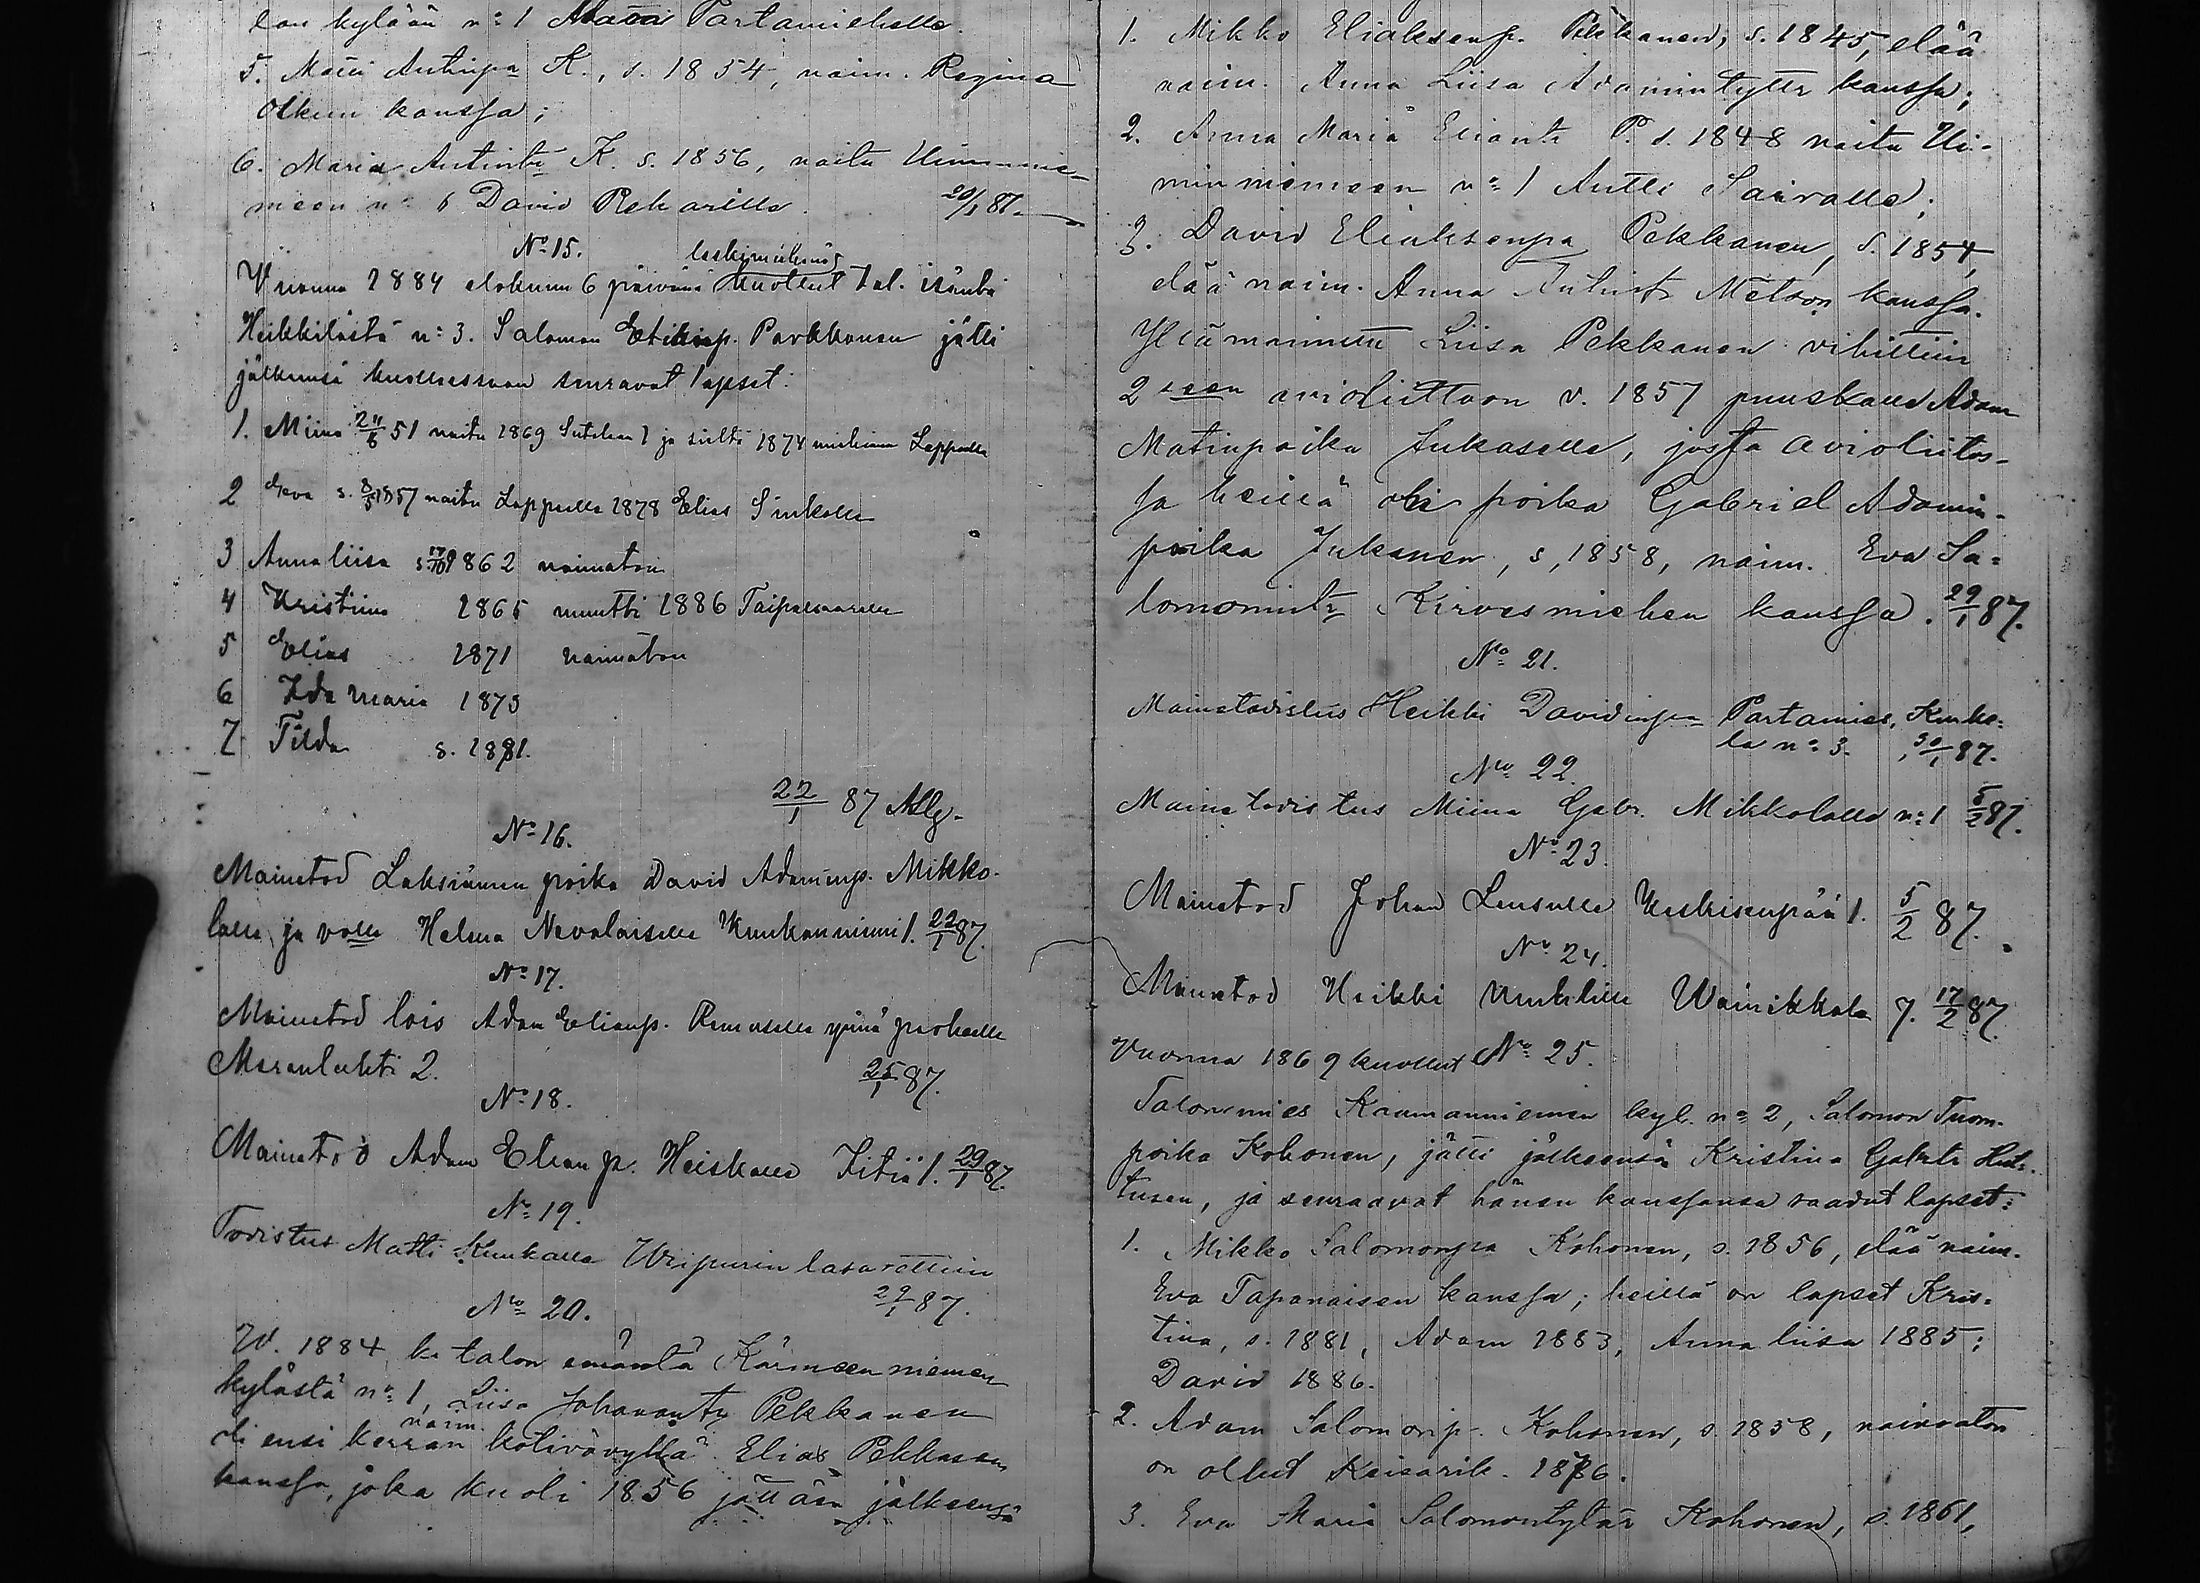 kylään n:o 1 Matti Partamiehelle.
5. Matti Antinpa K., s. 1854, naim. Regina
Olkun kanssa;
6. Maria Antintr K. s. 1856, naitu
meen n:o 6 David Rekarille. 20/1 87.
No 15.
leskimiehenä
Vuonna 1884 elokuun 6 päivänä kuollut tal. isäntä
Heikkilästä n:o 3. Salomon Parkkonen jätti
jälkeensä kuollessaan seuravat lapset:
1. Miina 51 naitu 1869 1 ja sieltä 1874 Lappeelle
2 Eeva s. 8/5 1857 naitu Lappeelle 1878 Elias Sinkolle
3 Anna liisa s. 17/10 1862 naimaton
4 Kristiina 1865 muutti 1886 Taipalsaarelle
5 Elias 1871 naimaton
6 Ida Maria 1875
7 Tilda s. 1881.
22/1 87
No 16.
Mainetod Laksiämen poika David Adaminp. Mikko-
lalle ja Helena Nevalaiselle 1. 22/1 87.
No 17.
Mainetod lois Adam Eliasp.
2. 25/1 87.
No 18.
Mainetod Adam Elian p. Heiskalle Iitiä 1. 29/1 87.
No 19.
Todistus Matti Kuukalle Wiipurin lasarettiin
29/1 87.
No 20.
W. 1884 k. talon emäntä Kärmeenniemen
kylästä n:o 1, Liisa Johanantr Pekkanen
naim.
oli ensi kerran kotivävyltä Elias Pekkasen
kanssa, joka kuoli 1856 jättäen jälkeensä
1. Mikko Eliaksenp. Pekkanen, s. 1845, elää
naim. Anna Liisa Adamintyttr kanssa;
2. Anna Maria Eliantr P. s. 1848 naitu Ui-
minniemeen n:o 1 Antti Sairalle;
3. David Eliaksenpa Pekkanen, s. 1854,
elää naim. Anna Antintr Metson kanssa.
Yllämainittu Liisa Pekkanen vihittiin
2seen avioliittoon v. 1857 puuskalle Adam
Matinpoika Jukaselle, josta avioliitos-
sa heillä oli poika Gabriel Adamin-
poika Jukanen, s. 1858, naim. Eva Sa-
lomonintr Kirvesmiehen kanssa. 29/1 87.
No 21.
Mainetodistus Heikki Davidinpa Partamies, Kurke-
la n:o 3. 30/1 87.
No 22.
Mainetodistus Miina Gabr. Mikkolalle n:o 1 5/2 87.
No 23.
Mainetod Johan Lensulle Keskisenpää 1. 5/2 87.
No 24.
Mainetod Heikki Wainikkala 7. 17/2 87.
Vuonna 1869 kuollut No 25.
Talonmies Kaumanniemen kyl. n:o 2, Salomon Tuom.
poika Kohonen, jätti jälkeensä Kristina Gabrtr Hut-
tusen, ja seuraavat hänen kanssansa saadut lapset:
1. Mikko Salomonpa Kohonen, s. 1856, elää naim.
Eva Taponaisen kanssa; heillä on lapset Kris-
tina, s. 1881, Adam 1883, Anna liisa 1885;
David 1886.
2. Adam Salomonp. Kohonen, s. 1858, naimaton
on ollut Keisarik. 1876.
3. Eva Maria Salomontytär Kohonen, s. 1861,